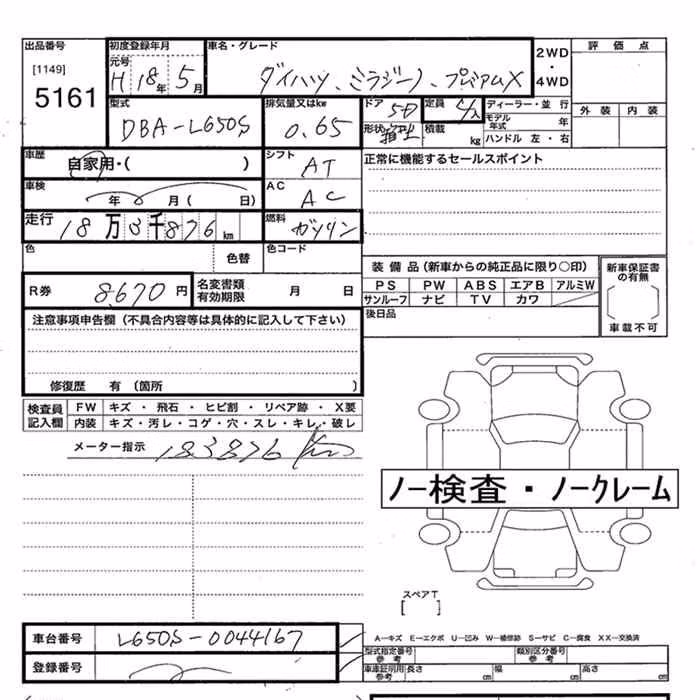 出品番号 初度登録年月 車名・グレード 2WD・4WD 評価点
[1149] 元号 H18年5月 ダイハツ、ミラジーノ、プレミアムX
5161 型式 排気量又はkw ドア 5D 定員 4人 ディーラー・並行 外装 内装
DBA-L650S 0.65 形状 積載 kg モデル年式 年 ハンドル 左・右
車歴 自家用・( ) シフト AT 正常に機能するセールスポイント
車検 年 月 ( 日) AC AC
走行 18万3千876km 燃料 ガソリン
色 色替 色コード
装備品(新車からの純正品に限り○印) 新車保証書の有無
R券 8,670円 名変書類有効期限 月 日 PS PW ABS エアB アルミW
サンルーフ ナビ TV カワ
注意事項申告欄(不具合内容等は具体的に記入して下さい) 後日品 車載不可
修復歴 有 (箇所 )
検査員記入欄 FW キズ・飛石・ヒビ割・リペア跡・X要
内装 キズ・汚レ・コゲ・穴・スレ・キレ・破レ
メーター指示 183876km
ノー検査・ノークレーム
スペアT
[ ]
車台番号 L650S-0044167 A－キズ E－エクボ U－凹み W－補修跡 S－サビ C－腐食 XX－交換済
型式指定番号参考 類別区分番号参考
登録番号 車庫証明用参考 長さ cm 幅 cm 高さ cm